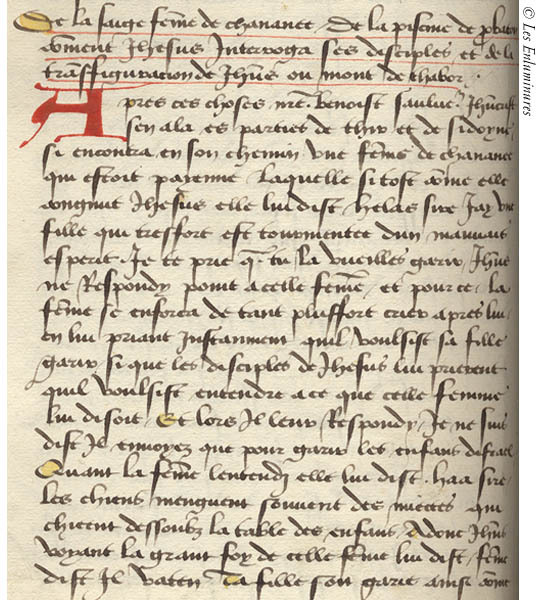 De la saige fẽme de chananee . De la piscine de p
cõment Jhesus Interroga ses disciples et de la
trãsffiguracion de Jhũs ou mont de thabor .
Apres ces choses nr̃e benoist sauluer Jhũcrist
sen ala es parties de thir et de sidoyne
si encontra en son chemin vne fẽme de chananee
qui estoit paienne laquelle si tost cõme elle
congnut Jhesus elle lui dist helas sire Jay vne
fille qui tresfort est tourmentee dun mauuais
esperit Je te prie q̃ tu la vueilles garir Jhũs
ne Respondy point a celle fẽme et pour ce la
fẽme se enforca de tant plusfort crier apres lui
en lui priant Instanment quil voulsist sa fille
garir si que les disciples de Jhesus lui prierent
quil voulsist entendre a ce que celle femme
lui disoit . Et lors Il leur Respondy Je ne suis
dist Il enuoyez que pour garir les enfans disrael
Quant la fẽme lentendj elle lui dist haa sire
les chiens menguent souuent des miectes qui
chieent dessoubz la table des enfans Adonc Jhũs
voyant la grant foy de celle fẽme lui dist fẽme
dist Il vaten Ta fille soit garie ainsi cõme
© Les Enluminures